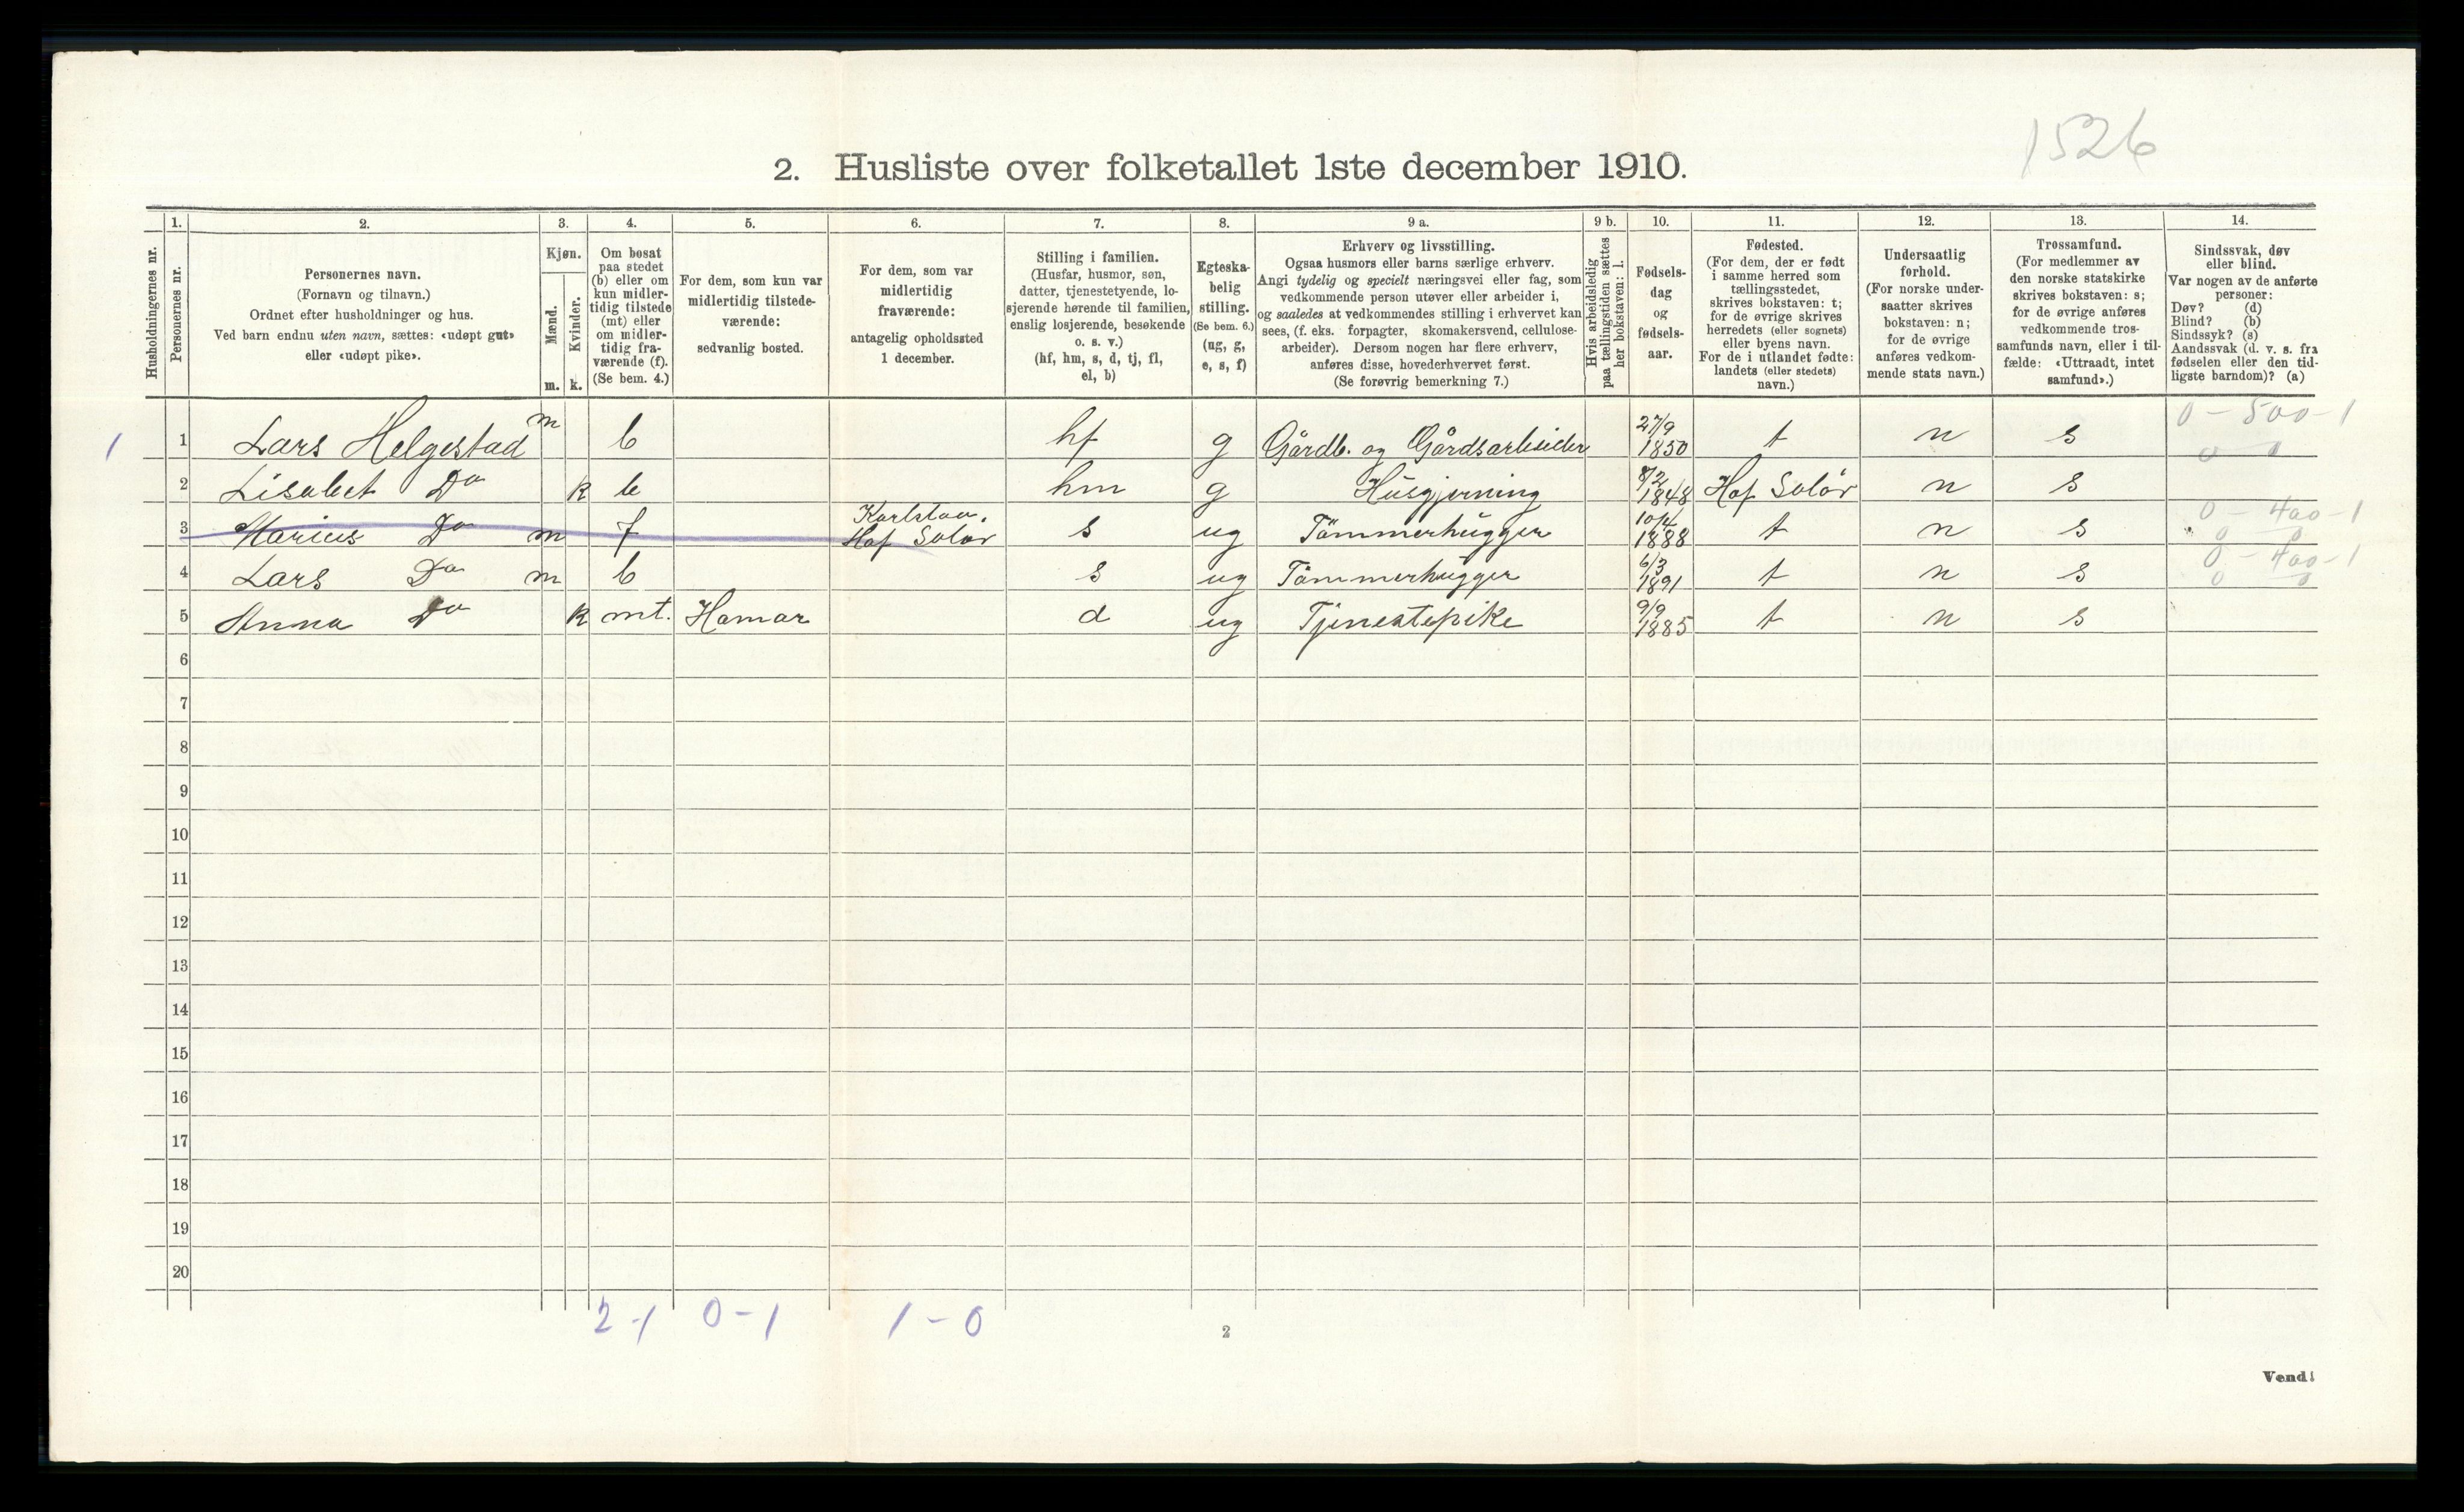 1526
2. Husliste over folketallet 1ste december 1910.
Husholdningernes nr.
1.
Personernes nr.
2.
Personernes navn.
(Fornavn og tilnavn.)
Ordnet efter husholdninger og hus.
Ved barn endnu uten navn, sættes: «udøpt gut»
eller «udøpt pike».
3.
Kjøn.
Mænd.
m.
Kvinder.
k.
4.
Om bosat
paa stedet
(b) eller om
kun midler-
tidig tilstede
(mt) eller
om midler-
tidig fra-
værende (f).
(Se bem. 4.)
5.
For dem, som kun var
midlertidig tilstede-
værende:
sedvanlig bosted.
6.
For dem, som var
midlertidig
fraværende:
antagelig opholdssted
1 december.
7.
Stilling i familien.
(Husfar, husmor, søn,
datter, tjenestetyende, lo-
sjerende hørende til familien,
enslig losjerende, besøkende
o. s. v.)
(hf, hm, s, d, tj, fl,
el, b)
8.
Egteska-
belig
stilling.
(Se bem. 6.)
(ug, g,
e, s, f)
9 a.
Erhverv og livsstilling.
Ogsaa husmors eller barns særlige erhverv.
Angi tydelig og specielt næringsvei eller fag, som
vedkommende person utøver eller arbeider i,
og saaledes at vedkommendes stilling i erhvervet kan
sees, (f. eks. forpagter, skomakersvend, cellulose-
arbeider). Dersom nogen har flere erhverv,
anføres disse, hovederhvervet først.
(Se forøvrig bemerkning 7.)
9 b.
Hvis arbeidsledig
paa tællingstiden sættes
her bokstaven: l.
10.
Fødsels-
dag
og
fødsels-
aar.
11.
Fødested.
(For dem, der er født
i samme herred som
tællingsstedet,
skrives bokstaven: t;
for de øvrige skrives
herredets (eller sognets)
eller byens navn.
For de i utlandet fødte:
landets (eller stedets)
navn.)
12.
Undersaatlig
forhold.
(For norske under-
saatter skrives
bokstaven: n;
for de øvrige
anføres vedkom-
mende stats navn.)
13.
Trossamfund.
(For medlemmer av
den norske statskirke
skrives bokstaven: s;
for de øvrige anføres
vedkommende tros-
samfunds navn, eller i til-
fælde: «Uttraadt, intet
samfund».)
14.
Sindssvak, døv
eller blind.
Var nogen av de anførte
personer:
Døv? (d)
Blind? (b)
Sindssyk? (s)
Aandssvak (d. v. s. fra
fødselen eller den tid-
ligste barndom)? (a)
1 1 Lars Helgestad m b hf g Gårdb. og Gårdsarbeider 27/9 1850 t n s 0 - 500 - 1
2 Lisabet Do k b hm g Husgjerning 8/2 1848 Hof Solör n s
3 Marius Do m f Karlstad. Hof Solør s ug Tömmerhugger 10/4 1888 t n s 0 - 400 - 1
4 Lars Do m b s ug Tömmerhugger 6/3 1891 t n s 0 - 400 - 1
5 Anna Do k mt. Hamar d ug Tjenestepike 9/9 1885 t n s
6
7
8
9
10
11
12
13
14
15
16
17
18
19
20
2 - 1 0 - 1 1 - 0
2
Vend!